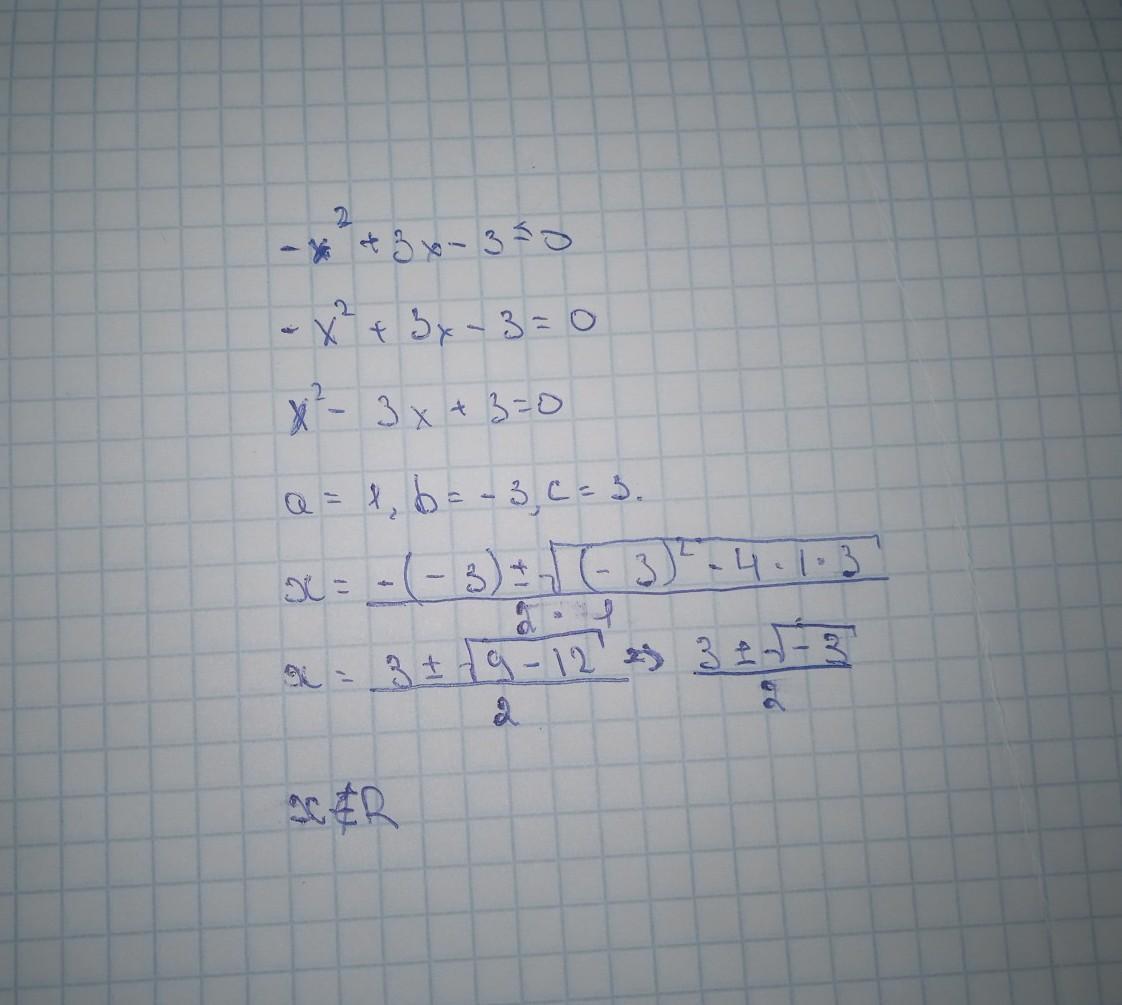 -x² + 3x - 3 ≤ 0
-x² + 3x - 3 = 0
x² - 3x + 3 = 0
a = 1, b = -3, c = 3.
x = (-(-3) ± √((-3)² - 4 · 1 · 3)) / (2 · 1)
x = (3 ± √(9 - 12)) / 2 => (3 ± √(-3)) / 2
x ∉ R